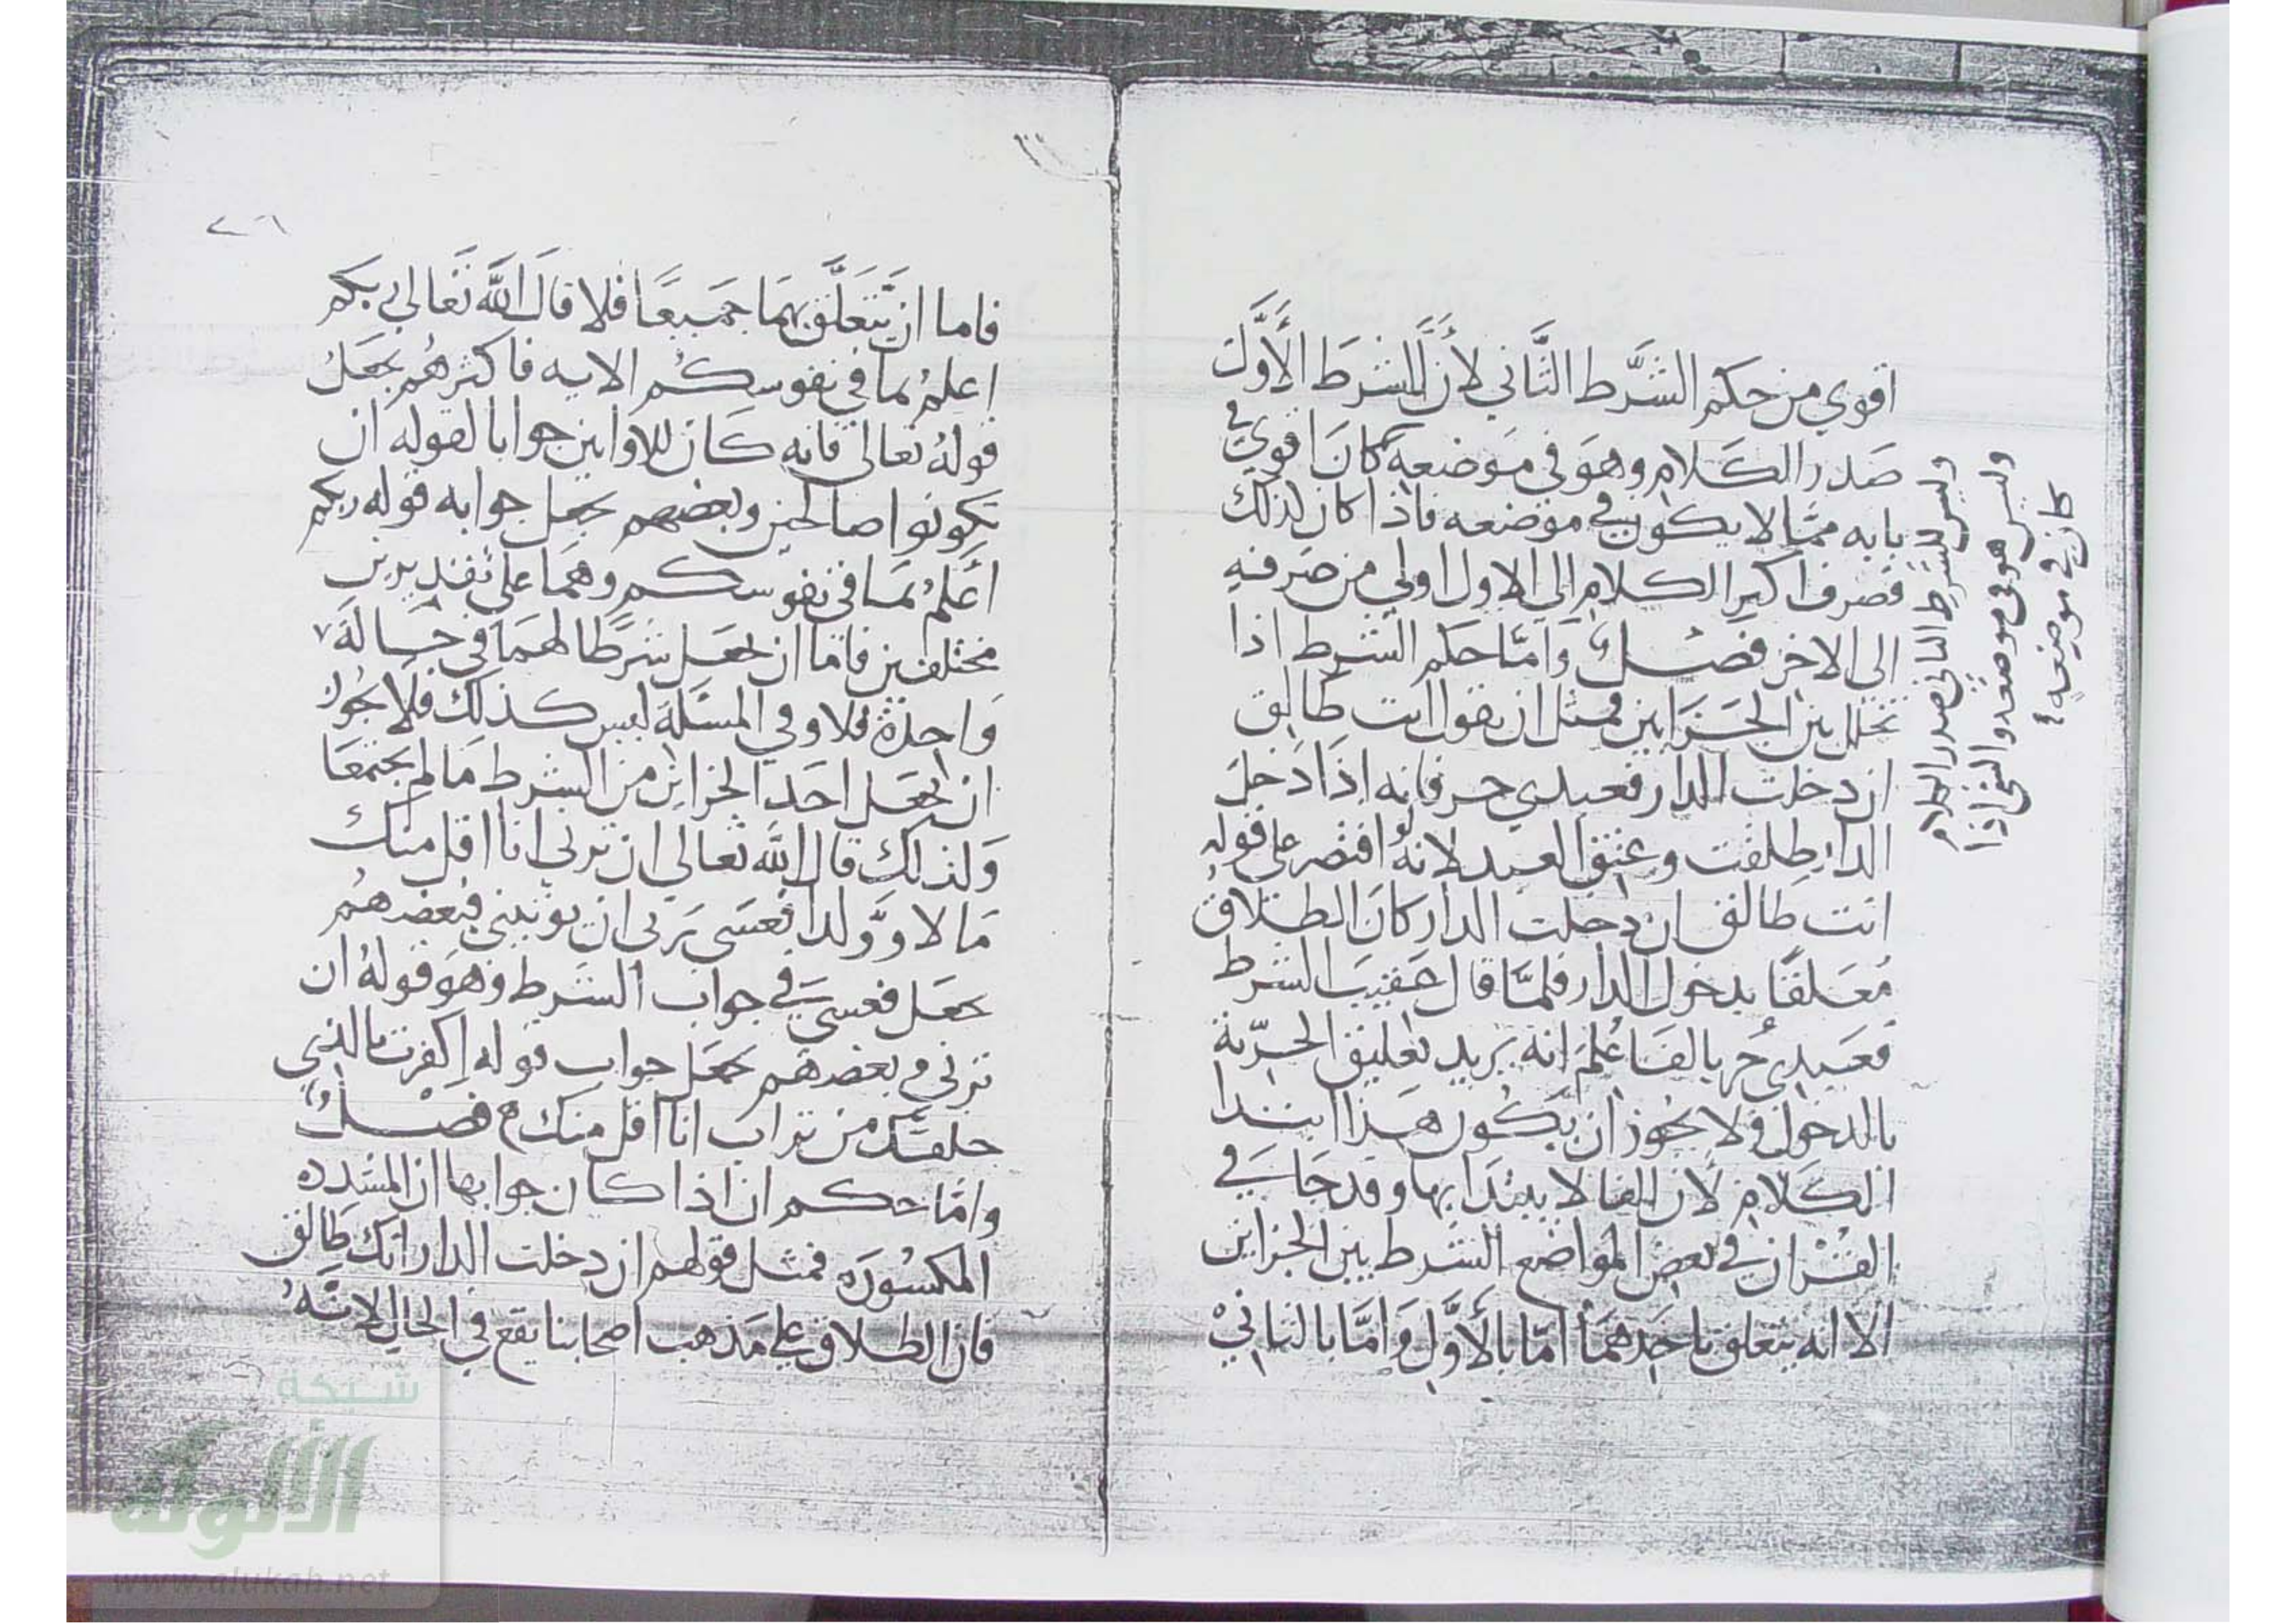 اقوي من حكم الشَّرط الثَّاني لأنَّ للشرطَ الأَوَّل
صَدر الكَلام وهوَ في مَوضعِه كانَ اقوي في
بابه ممَّا لا يكون في موضعه فاذا كان لذلك
فصرف اكبر الكلام الي الاول اولي من صَرفهِ
الى الاخر فصل وَامّا حكم الشرط اذا
تخلل بين الجَزَاين فمثل ان يقول انت طالِق
ان دخلت الدار فعبدي حر فانه اذا دَخلَ
الدار طلقت وعتق العبد لانهُ لو اقتصر على قوله
انت طالق ان دخلت الدار كانَ الطلاق
مُعَلقًا بدخول الدار فلمَّا قال عَقيبَ الشرط
فعَبدي حُر بالفَا عُلمَ انه يريد تعليق الحريّة
بالدخول فلا يجوز ان يكون هذا ابتدا
الكلام لان الفا لا يبتدَا بها وقد جَا في
القُرْان في بعض المواضع الشرط بين الجزاين
الا انه يتعلق باحَدهمَا امّا بالأَوَّل وَامَّا بالثاني
وليس للشرط الثاني صدر الكلام
وليس هو في موضعه والشي اذا
كان في موضعه
٢٦
فاما ان يَّتعَلَّق بهمَا جَميعًا فلا قالَ اللَّه تَعالي ربكم
اعلمُ بما في نفوسكُم الايه فاكثرهُم يجعَلُ
قولهُ تعالى فانه كَان للاوابين جوابا لقوله ان
تكونوا صالحين وبعضهم يجعل جوابه قوله ربكم
أَعلمُ بمَا في نفوسكم وهمَا علي تقديرين
مختلفين فامّا ان يجعَل شرطًا لهمَا في حَالَة
وَاحِدة فلا وفي المسَلة ليس كذلك فلا يجُوز
ان يجعَل احَد الجزاين من الشرط مَا لم يجتمعَا
وَلذلك قال اللَّه تعَالي ان ترني انا اقل منك
مَالا وَّولدا فعَسَى رَبي ان يوتيني فبعضهُم
يجعَل فعسي في جواب الشَرط وَهوَ قولهُ ان
ترني وبعضهم يجعَل جواب قوله اكفرت بالذي
خلقك من تراب انا اقل منك ه فصْلٌ
وامّا حكم ان اذا كان جوابها ان المشدده
المكسُورَه فمثل قولهم ان دخلت الدار انك طالق
فان الطلاق على مَذهب اصحابنا يقع في الحال لانّهُ
شبكة
الألوكة
www.alukah.net